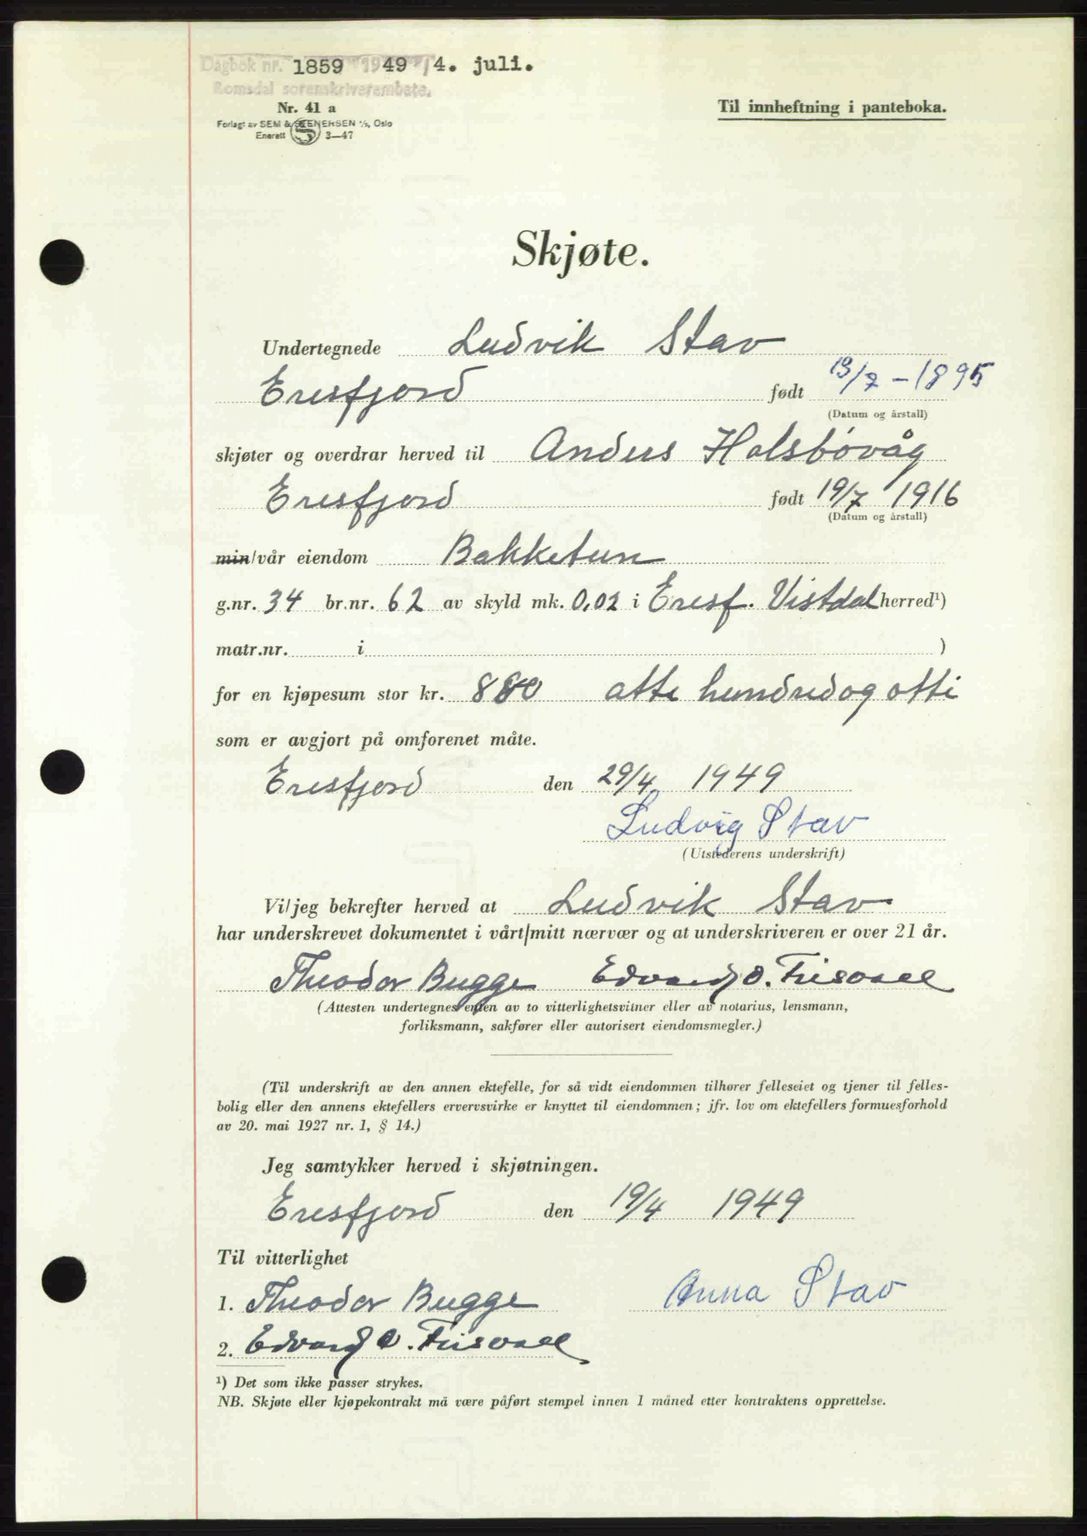 Dagbok nr. 1859 1949 4. juli.
Romsdal sorenskriverembete.
Nr. 41 a
Til innheftning i panteboka.
Forlagt av SEM & STENERSEN A/S, Oslo
Enerett S 3—47
Skjøte.
Undertegnede Ludvik Stav
Eresfjord født 19/7 - 1895
(Datum og årstall)
skjøter og overdrar herved til Anders Holsbøvåg
Eresfjord født 19/7 1916
(Datum og årstall)
min/vår eiendom Bakketun
g.nr. 34 br.nr. 62 av skyld mk. 0,02 i Eresf. Vistdal herred¹)
matr.nr. i )
for en kjøpesum stor kr. 880 atte hundred og otti
som er avgjort på omforenet måte.
Eresfjord den 29/4 1949
Ludvig Stav
(Utstederens underskrift)
Vi/jeg bekrefter herved at Ludvik Stav
har underskrevet dokumentet i vårt/mitt nærvær og at underskriveren er over 21 år.
Theodor Bugge Edvard O. Frisvoll
(Attesten undertegnes enten av to vitterlighetsvitner eller av notarius, lensmann,
forliksmann, sakfører eller autorisert eiendomsmegler.)
(Til underskrift av den annen ektefelle, for så vidt eiendommen tilhører felleseiet og tjener til felles-
bolig eller den annens ektefellers ervervsvirke er knyttet til eiendommen; jfr. lov om ektefellers formuesforhold
av 20. mai 1927 nr. 1, § 14.)
Jeg samtykker herved i skjøtningen.
Eresfjord den 19/4 1949
Til vitterlighet
1. Theodor Bugge Anna Stav
2. Edvard O. Frisvoll
¹) Det som ikke passer strykes.
NB. Skjøte eller kjøpekontrakt må være påført stempel innen 1 måned etter kontraktens opprettelse.